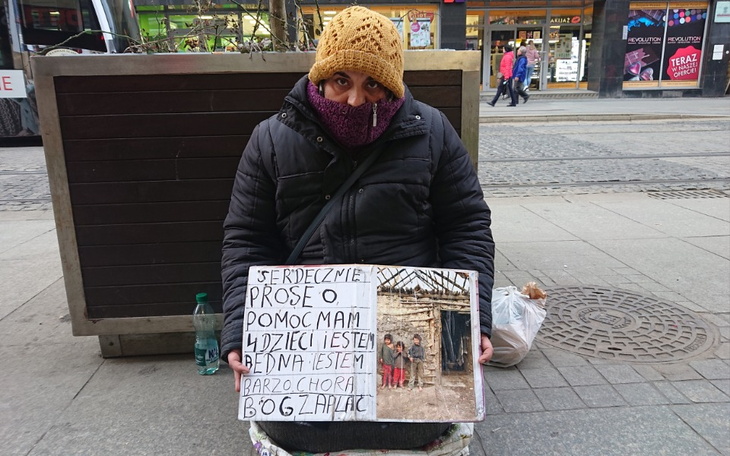 SERDECZNIE
PROSE O
POMOC MAM
4 DZIECI iESTEM
BEDNA iESTEM
BARZO CHORA
BOG ZAPLAĆ
REVOLUTION
REVOLUTION
TERAZ
W NASZEJ
OFERCIE!